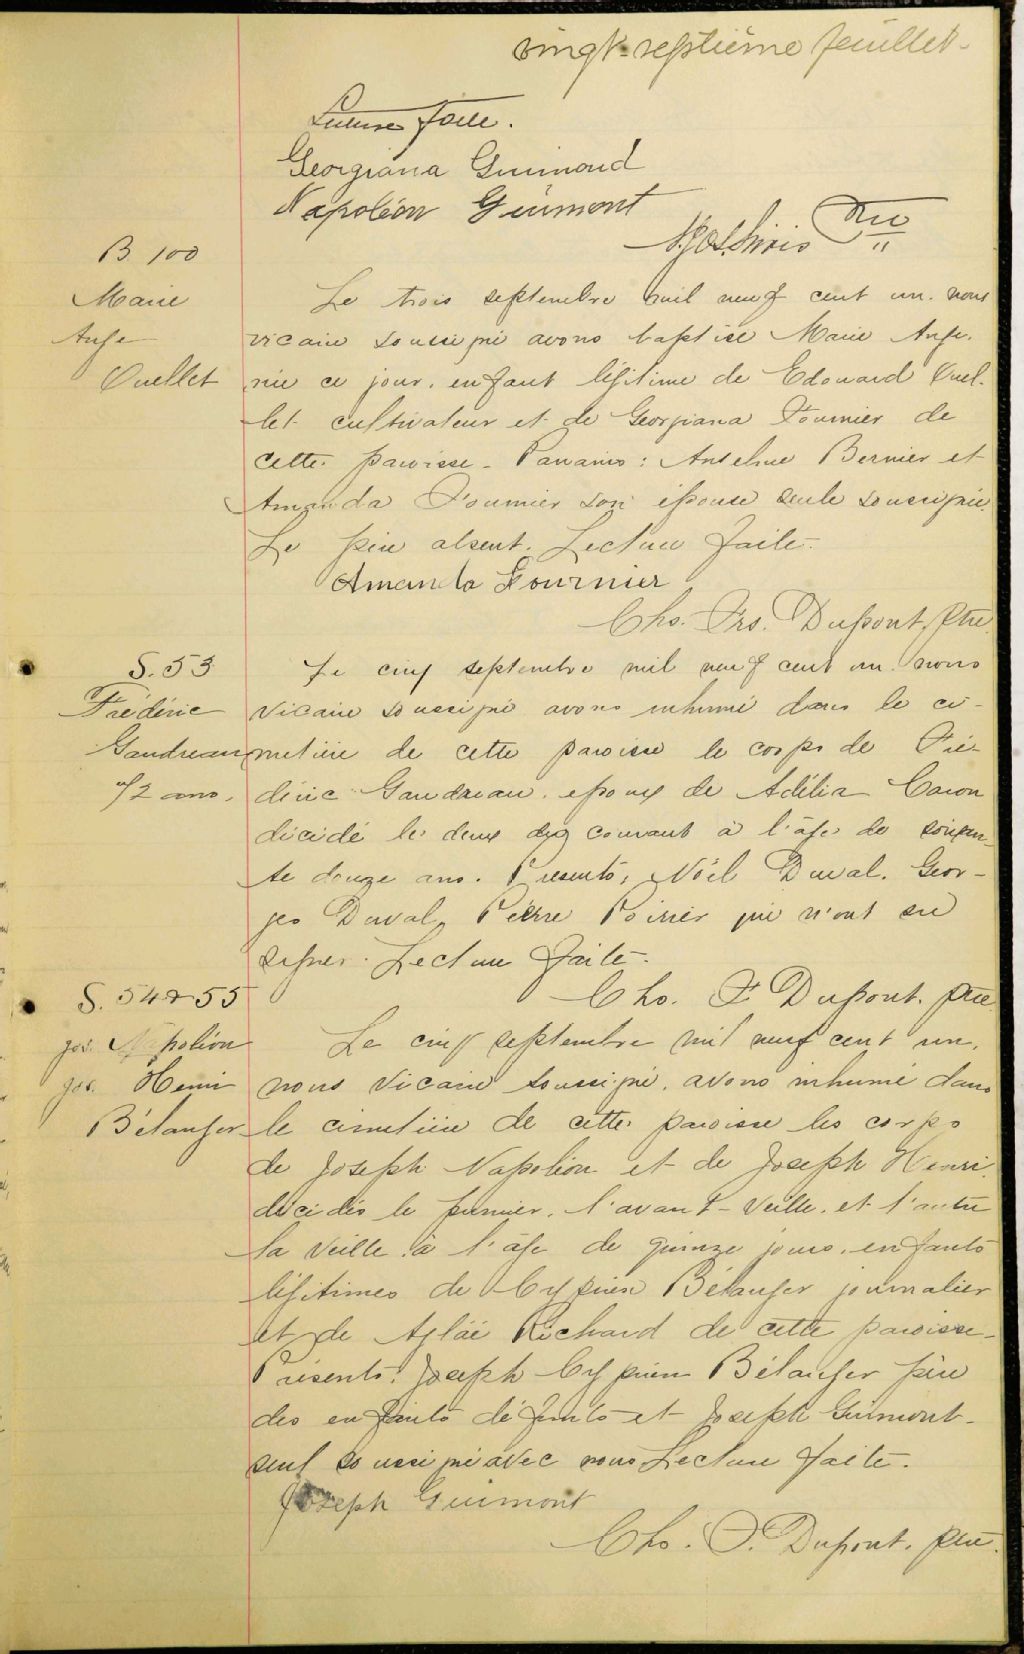 vingt-septième feuillet-
Lecture faite.
Georgiana Guimond
Napoléon Guimont
Ptre
B. 100
Marie
Ange
Ouellet
Le trois septembre mil neuf cent un. nous
vicaire soussigné avons baptisé Marie Ange.
née ce jour. enfant légitime de Edouard Ouel-
let cultivateur et de Georgiana Fournier de
cette paroisse - Parrains: Anselme Bernier et
Amanda Fournier son épouse seule soussignée.
Le père absent. Lecture faite.
Amanda Fournier
Chs. Frs. Dupont, ptre.
S. 53
Frédéric
Gaudreau
72 ans.
Le cinq septembre mil neuf cent un nous
vicaire soussigné avons inhumé dans le ci-
metière de cette paroisse le corps de Fré-
déric Gaudreau. époux de Adélia Caron
décédé le deux du courant à l'âge de soixan-
te douze ans. Présents, Noël Duval. Geor-
ges Duval, Pierre Poirier qui n'ont su
signer. Lecture faite.
Chs. F. Dupont. ptre
S. 54 & 55
jos. Napoléon
jos. Henri
Bélanger
Le cinq septembre mil neuf cent un,
nous vicaire soussigné, avons inhumé dans
le cimetière de cette paroisse les corps
de Joseph Napoléon et de Joseph Henri.
décédés le premier, l'avant-veille, et l'autre
la veille à l'âge de quinze jours, enfants
légitimes de Cyprien Bélanger journalier
et de Aglaé Richard de cette paroisse-
Présents: Joseph Cyprien Bélanger père
des enfants défunts et Joseph Guimont-
seul soussigné avec nous Lecture faite.
Joseph Guimont
Chs. F. Dupont. ptre.